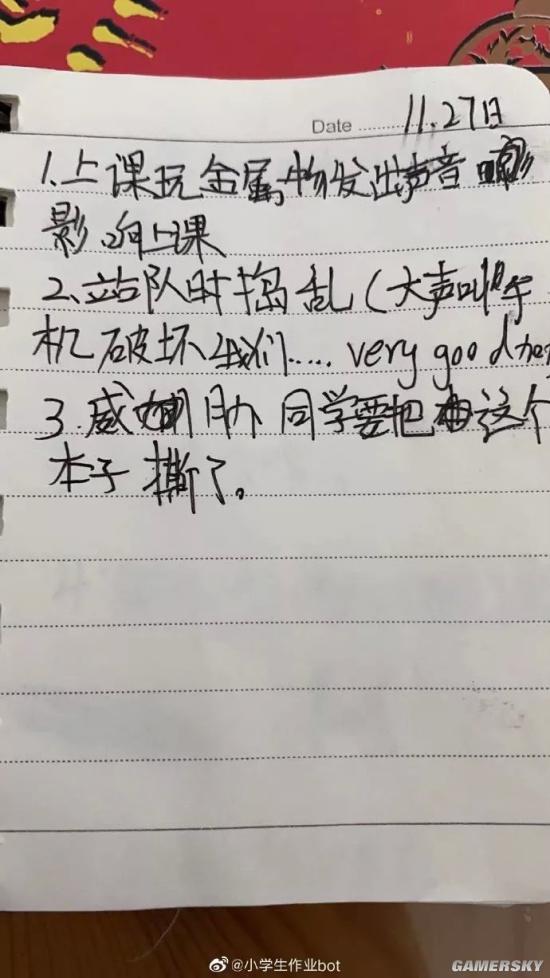 Date 11.27日
1.上课玩金属物发出声音
影响上课
2.站队时捣乱(大声叫
机破坏我们..... very good
3.威胁同学要把这个
本子撕了。
@小学生作业bot
GAMERSKY